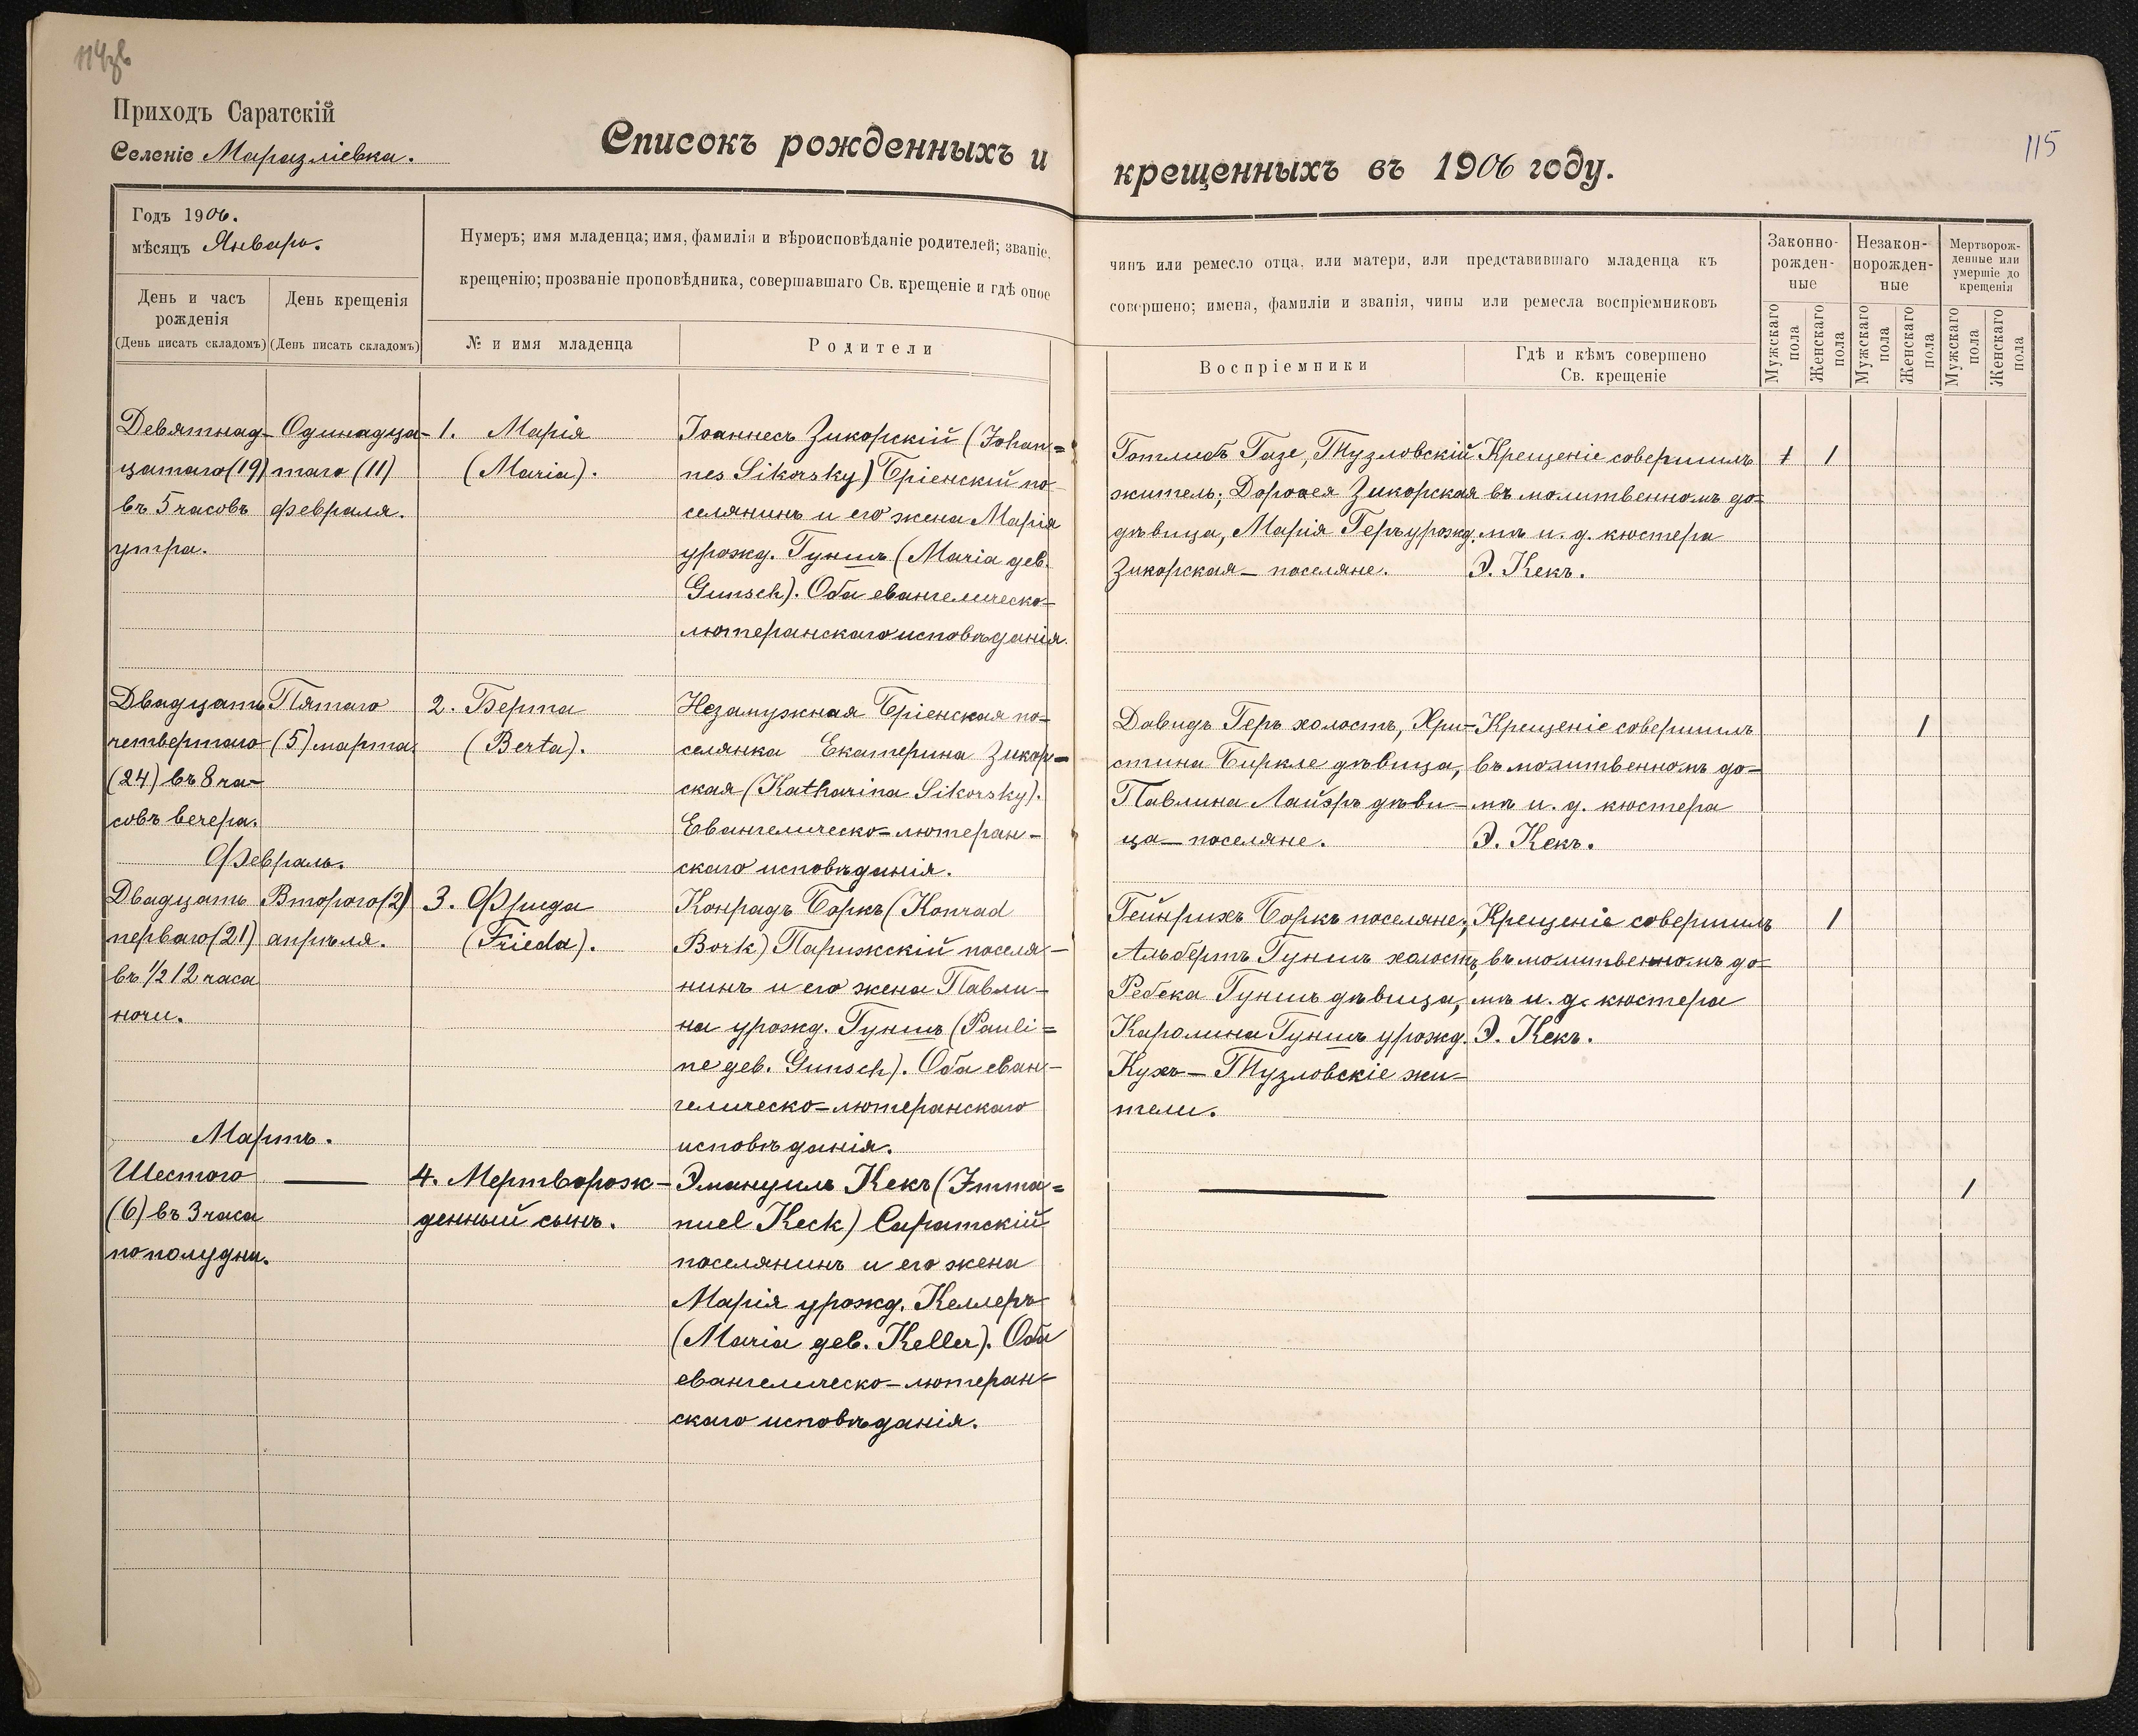 Приходъ Саратскій
Селеніе Маразліевка.
Списокъ рожденныхъ и крещенныхъ въ 1906 году.
115
Годъ 1906.
мѣсяцъ Январь.
День и часъ
рожденія
(День писать складомъ)
День крещенія
(День писать складомъ)
Нумеръ; имя младенца; имя, фамилія и вѣроисповѣданіе родителей; званіе,
крещенію; прозваніе проповѣдника, совершавшаго Св. крещеніе и гдѣ оное
№ и имя младенца
Родители
чинъ или ремесло отца, или матери, или представившаго младенца къ
совершено; имена, фамиліи и званія, чины или ремесла воспріемниковъ
Воспріемники
Гдѣ и кѣмъ совершено
Св. крещеніе
Законно-
рожден-
ные
Незакон-
норожден-
ные
Мертворож-
денные или
умершіе до
крещенія
Мужскаго
пола
Женскаго
пола
Мужскаго
пола
Женскаго
пола
Мужскаго
пола
Женскаго
пола
Девятнад-
цатаго (19)
въ 5 часовъ
утра.
Одинадца-
таго (11)
февраля.
1. Марія
(Maria).
Іоаннесъ Зикорскій (Johan=
nes Sikorsky) Бріенскій по-
селянинъ и его жена Марія
урожд. Гуншъ (Maria geb.
Gunsch). Оба евангелическо-
лютеранскаго исповѣданія.
Готлибъ Газе, Тузловскій
житель; Доровея Зикорская
дѣвица, Марія Геръ урожд.
Зикорская — поселяне.
Крещеніе совершилъ
въ молитвенномъ до=
мѣ и. д. кюстера
Э. Кекъ.
1
Двадцать
четвертаго
(24) въ 8 ча-
совъ вечера.
Пятаго
(5) марта.
2. Берта
(Berta).
Незамужная Бріенская по-
селянка Екатерина Зикор=
ская (Katharina Sikorsky).
Евангелическо-лютеран-
скаго исповѣданія.
Давидъ Геръ холостъ, Хри-
стина Биркле дѣвица,
Павлина Лайэръ дѣви-
ца — поселяне.
Крещеніе совершилъ
въ молитвенномъ до-
мѣ и. д. кюстера
Э. Кекъ.
1
Февраль.
Двадцать
перваго (21)
въ 1/2 12 часа
ночи.
Второго (2)
апрѣля.
3. Фрида
(Frieda).
Конрадъ Боркъ (Konrad
Bork) Парижскій поселя-
нинъ и его жена Павли-
на урожд. Гуншъ (Pauli=
ne geb. Gunsch). Оба еван-
гелическо-лютеранскаго
исповѣданія.
Гейнрихъ Боркъ поселяне;
Альбертъ Гуншъ холостъ,
Ребека Гуншъ дѣвица,
Каролина Гуншъ урожд.
Кухъ — Тузловскіе жи-
тели.
Крещеніе совершилъ
въ молитвенномъ до=
мѣ и. д. кюстера
Э. Кекъ.
1
Мартъ.
Шестого
(6) въ 3 часа
пополудни.
4. Мертворож-
денный сынъ.
Эмануилъ Кекъ (Imma=
nuel Keck) Саратскій
поселянинъ и его жена
Марія урожд. Келлеръ
(Maria geb. Keller). Оба
евангелическо-лютеран-
скаго исповѣданія.
1